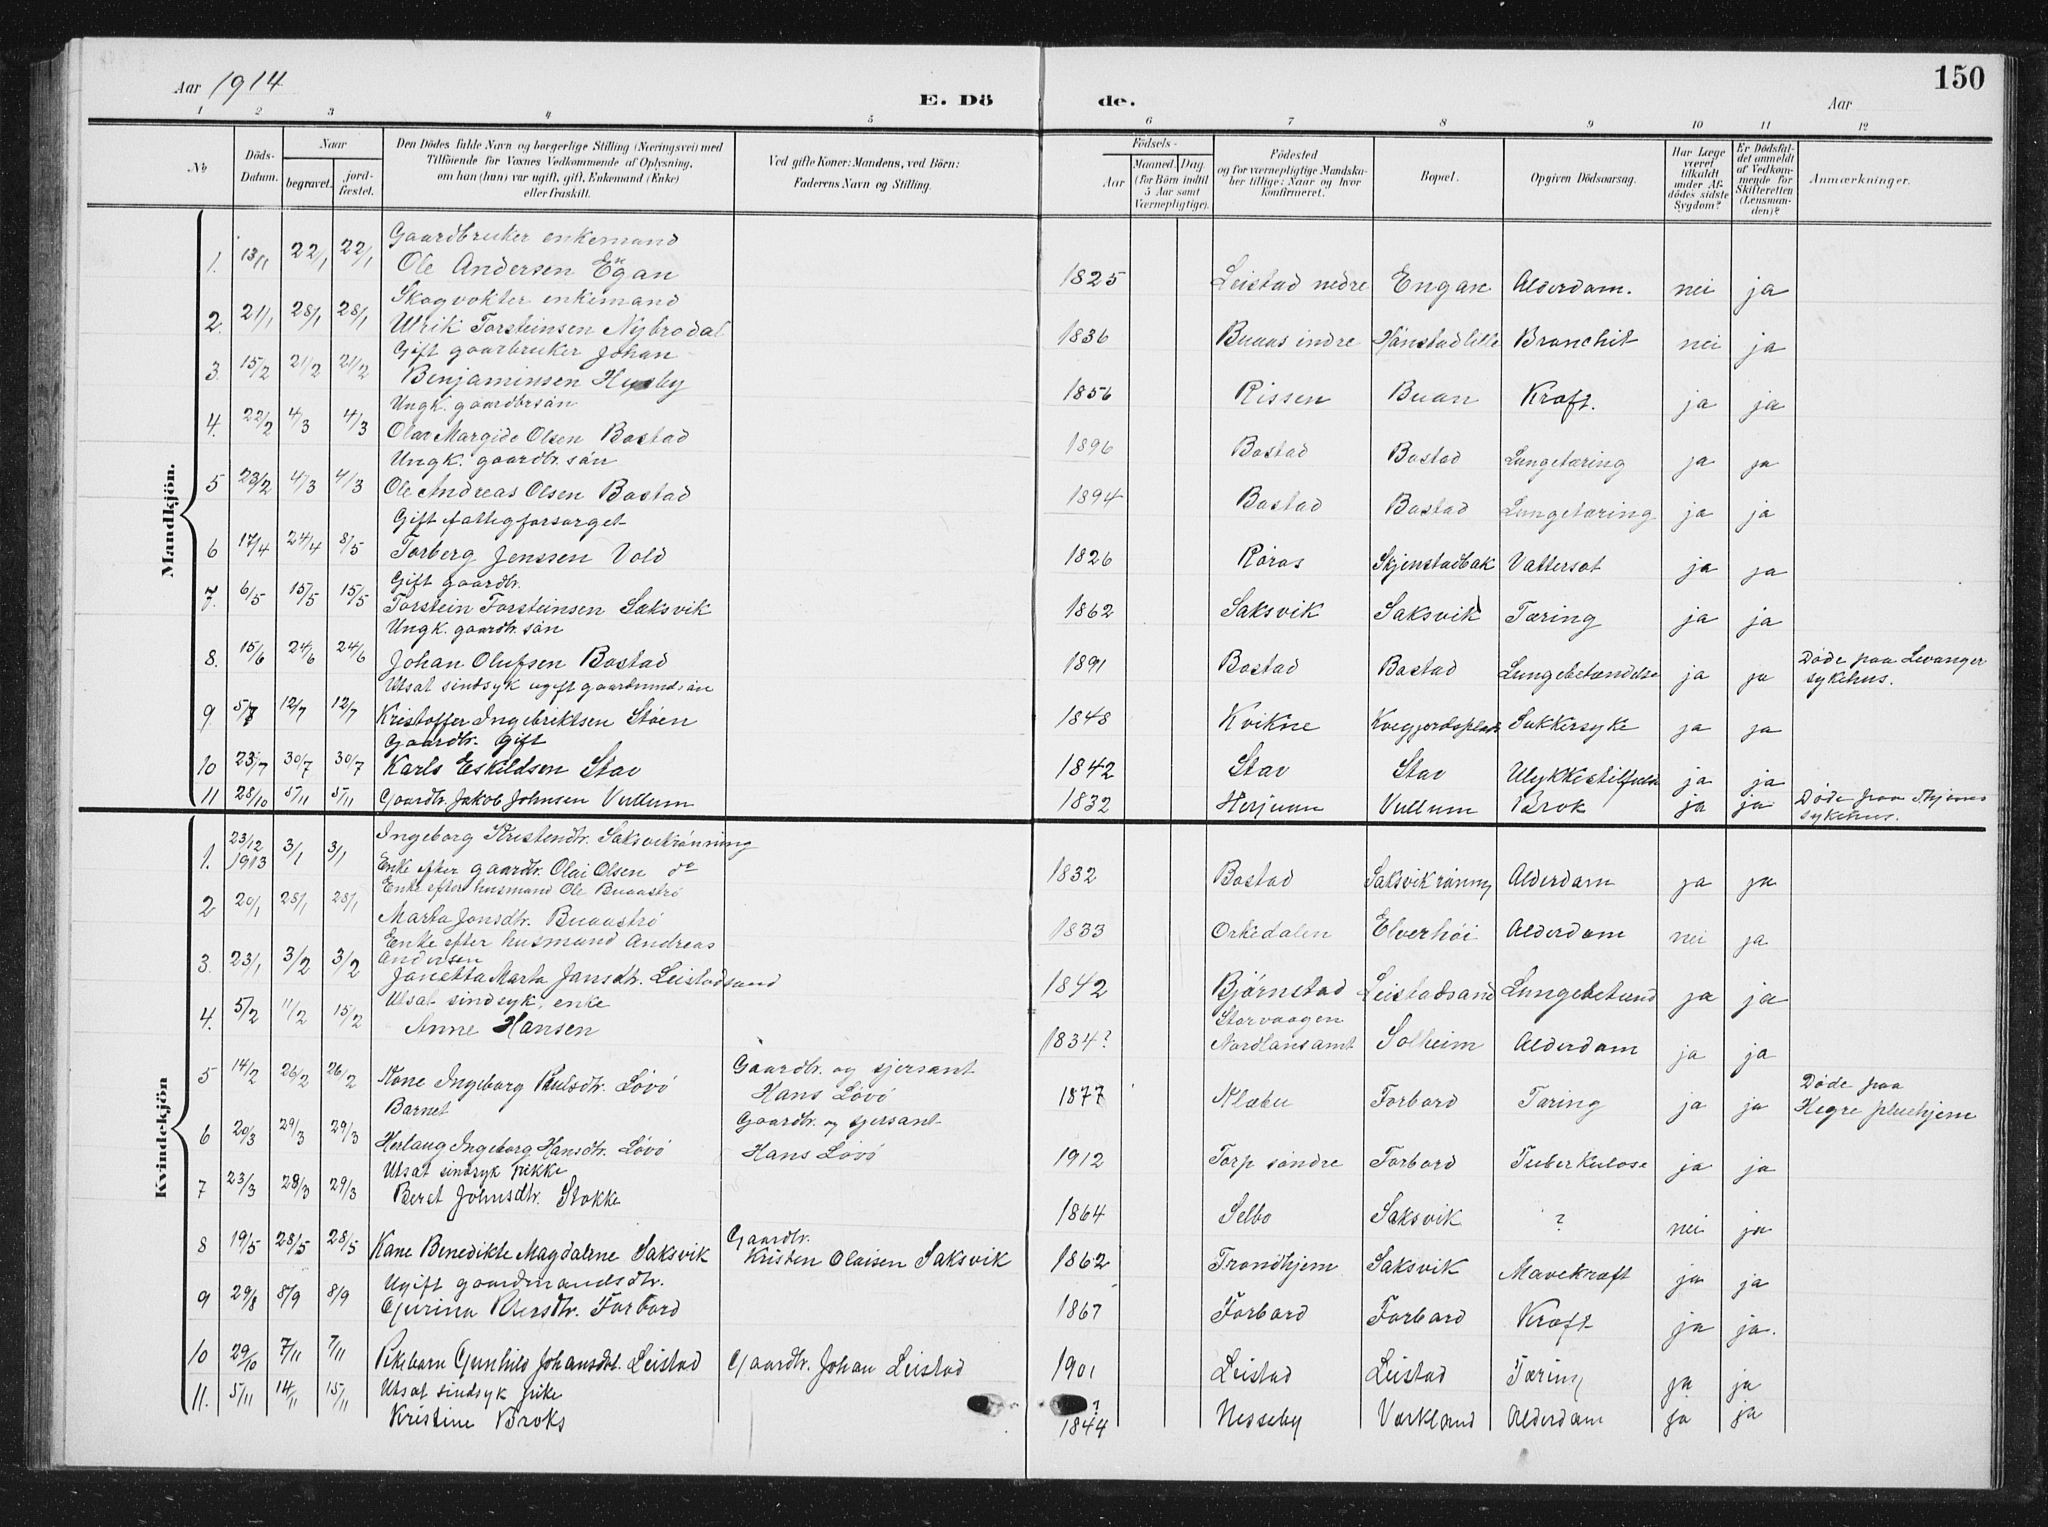 Aar 1914
E. Dö de.
Aar
150
1 2 3 4 5 6 7 8 9 10 11 12
No
Döds-Datum.
Naar
begravet.
jord-fæstet.
Den Dödes fulde Navn og borgerlige Stilling (Næringsvei) med
Tilföiende for Voxnes Vedkommende af Oplysning,
om han (hun) var ugift, gift, Enkemand (Enke)
eller fraskilt.
Ved gifte Koner: Mandens, ved Börn:
Faderens Navn og Stilling.
Födsels-
Aar
Maaned. Dag.
(for Börn indtil
5 Aar samt
Værnepligtige).
Födested
og for værnepligtige Mandska-
ber tillige: Naar og hvor
konfirmeret.
Bopæl.
Opgiven Dödsaarsag.
Har Læge
været
tilkaldt
under Af-
dödes sidste
Sygdom?
Er Dödsfal-
det anmeldt
af Vedkom-
mende for
Skifteretten
(Lensman-
den)?
Anmærkninger.
Mandkjön.
Gaardbruker enkemand
1. 13/1 22/1 22/1 Ole Andersen Engan 1825 Leistad nedre Engan Alderdom. nei ja
Skogvokter enkemand
2. 21/1 28/1 28/1 Ulrik Torsteinsen Nybrodal 1836 Buaas indre Hönstadlille Bronchit nei ja
Gift gaarbruker Johan
3. 15/2 21/2 21/2 Benjaminsen Husby 1856 Rissen Buan Kræft. ja ja
Ungk. gaardbrsön
4. 22/2 4/3 4/3 Olav Margido Olsen Bostad 1896 Bostad Bostad Lungetæring ja ja
Ungk. gaardbr. sön
5 23/2 4/3 4/3 Ole Andreas Olsen Bostad 1894 Bostad Bostad Lungetæring ja ja
Gift fattigforsørget
6 17/4 24/4 8/5 Torberg Jenssen Vold 1826 Röros Skjenstadbak Vattersot ja ja
Gift gaardbr.
7. 6/5 15/5 15/5 Torstein Torsteinsen Saksvik 1862 Saksvik Saksvik Tæring ja ja
Ungk. gaardbr. sön
8. 15/6 24/6 24/6 Johan Olufsen Bostad 1891 Bostad Bostad Lungebetændelse ja ja Døde paa Levanger
sykehus.
Utsat sindsyk ugift gaardmndsön
9 5/7 12/7 12/7 Kristoffer Ingebriktsen Støen 1848 Kvikne Sukkersyke ja ja
Gaardbr. Gift
10 23/7 30/7 30/7 Karls Eskildsen Stav 1842 Stav Stav ja ja
11 28/10 5/11 5/11 Gaardbr. Jakob Johnsen Vullum 1832 Herjuan Vullum Brok ja ja Døde paa Thjems
sykehus.
Kvindekjön
1. 23/12 1913 3/1 3/1 Ingeborg Kristendtr. Saksvikrønning
Enke efter gaardbr. Olai Olsen do 1832 Bostad Saksvikrönning Alderdom ja ja
Enke efter husmand Ole Buaaströ
2 20/1 28/1 28/1 Marta Jonsdtr. Buaaströ 1833 Orkedalen Elverhöi Alderdom nei ja
Enke efter husmund Andreas
Andersen
3. 23/1 3/2 3/2 Janetta Marta Jansdtr. Leistadsand 1842 Bjørnstad Leistadsand Lungebetænd ja ja
Utsat sindsyk, enke
4. 5/2 11/2 15/2 Anne Hansen 1834? Storvaagen
Nordlansamt Solheim Alderdom ja ja
5 14/2 26/2 26/2 Kone Ingeborg Lövö Gaardbr. og sjersant
Hans Lövö 1877 Klæbu Forbord Tæring ja ja Døde paa
Hegre pleiehjem
Barnet
6 20/3 29/3 29/3 Herlaug Ingeborg Hansdtr. Lövö Gaardbr. og sjersant
Hans Lövö 1912 Torp söndre Forbord Tuberkulose ja ja
Utsat sindsyk pikke
7 23/3 28/3 29/3 Beret Johnsdtr. Stokke 1864 Selbo Saksvik ? nei ja
8 19/5 28/5 28/5 Kone Benedikte Magdalene Saksvik Gaardbr.
Kristen Olaisen Saksvik 1862 Trondhjem Saksvik Mavekræft ja ja
Ugift gaardmandsdtr.
9 29/8 8/9 8/9 Gurina Forbord 1867 Forbord Forbord Kræft ja ja.
10 29/10 7/11 7/11 Pikebarn Gunhild Johansdtr. Leistad Gaardbr. Johan Leistad 1901 Leistad Leistad Tæring ja ja
Utsat sindsyk pike
11. 5/11 14/11 15/11 Kristine Broks 1844? Nesseby Værkland Alderdom ja ja